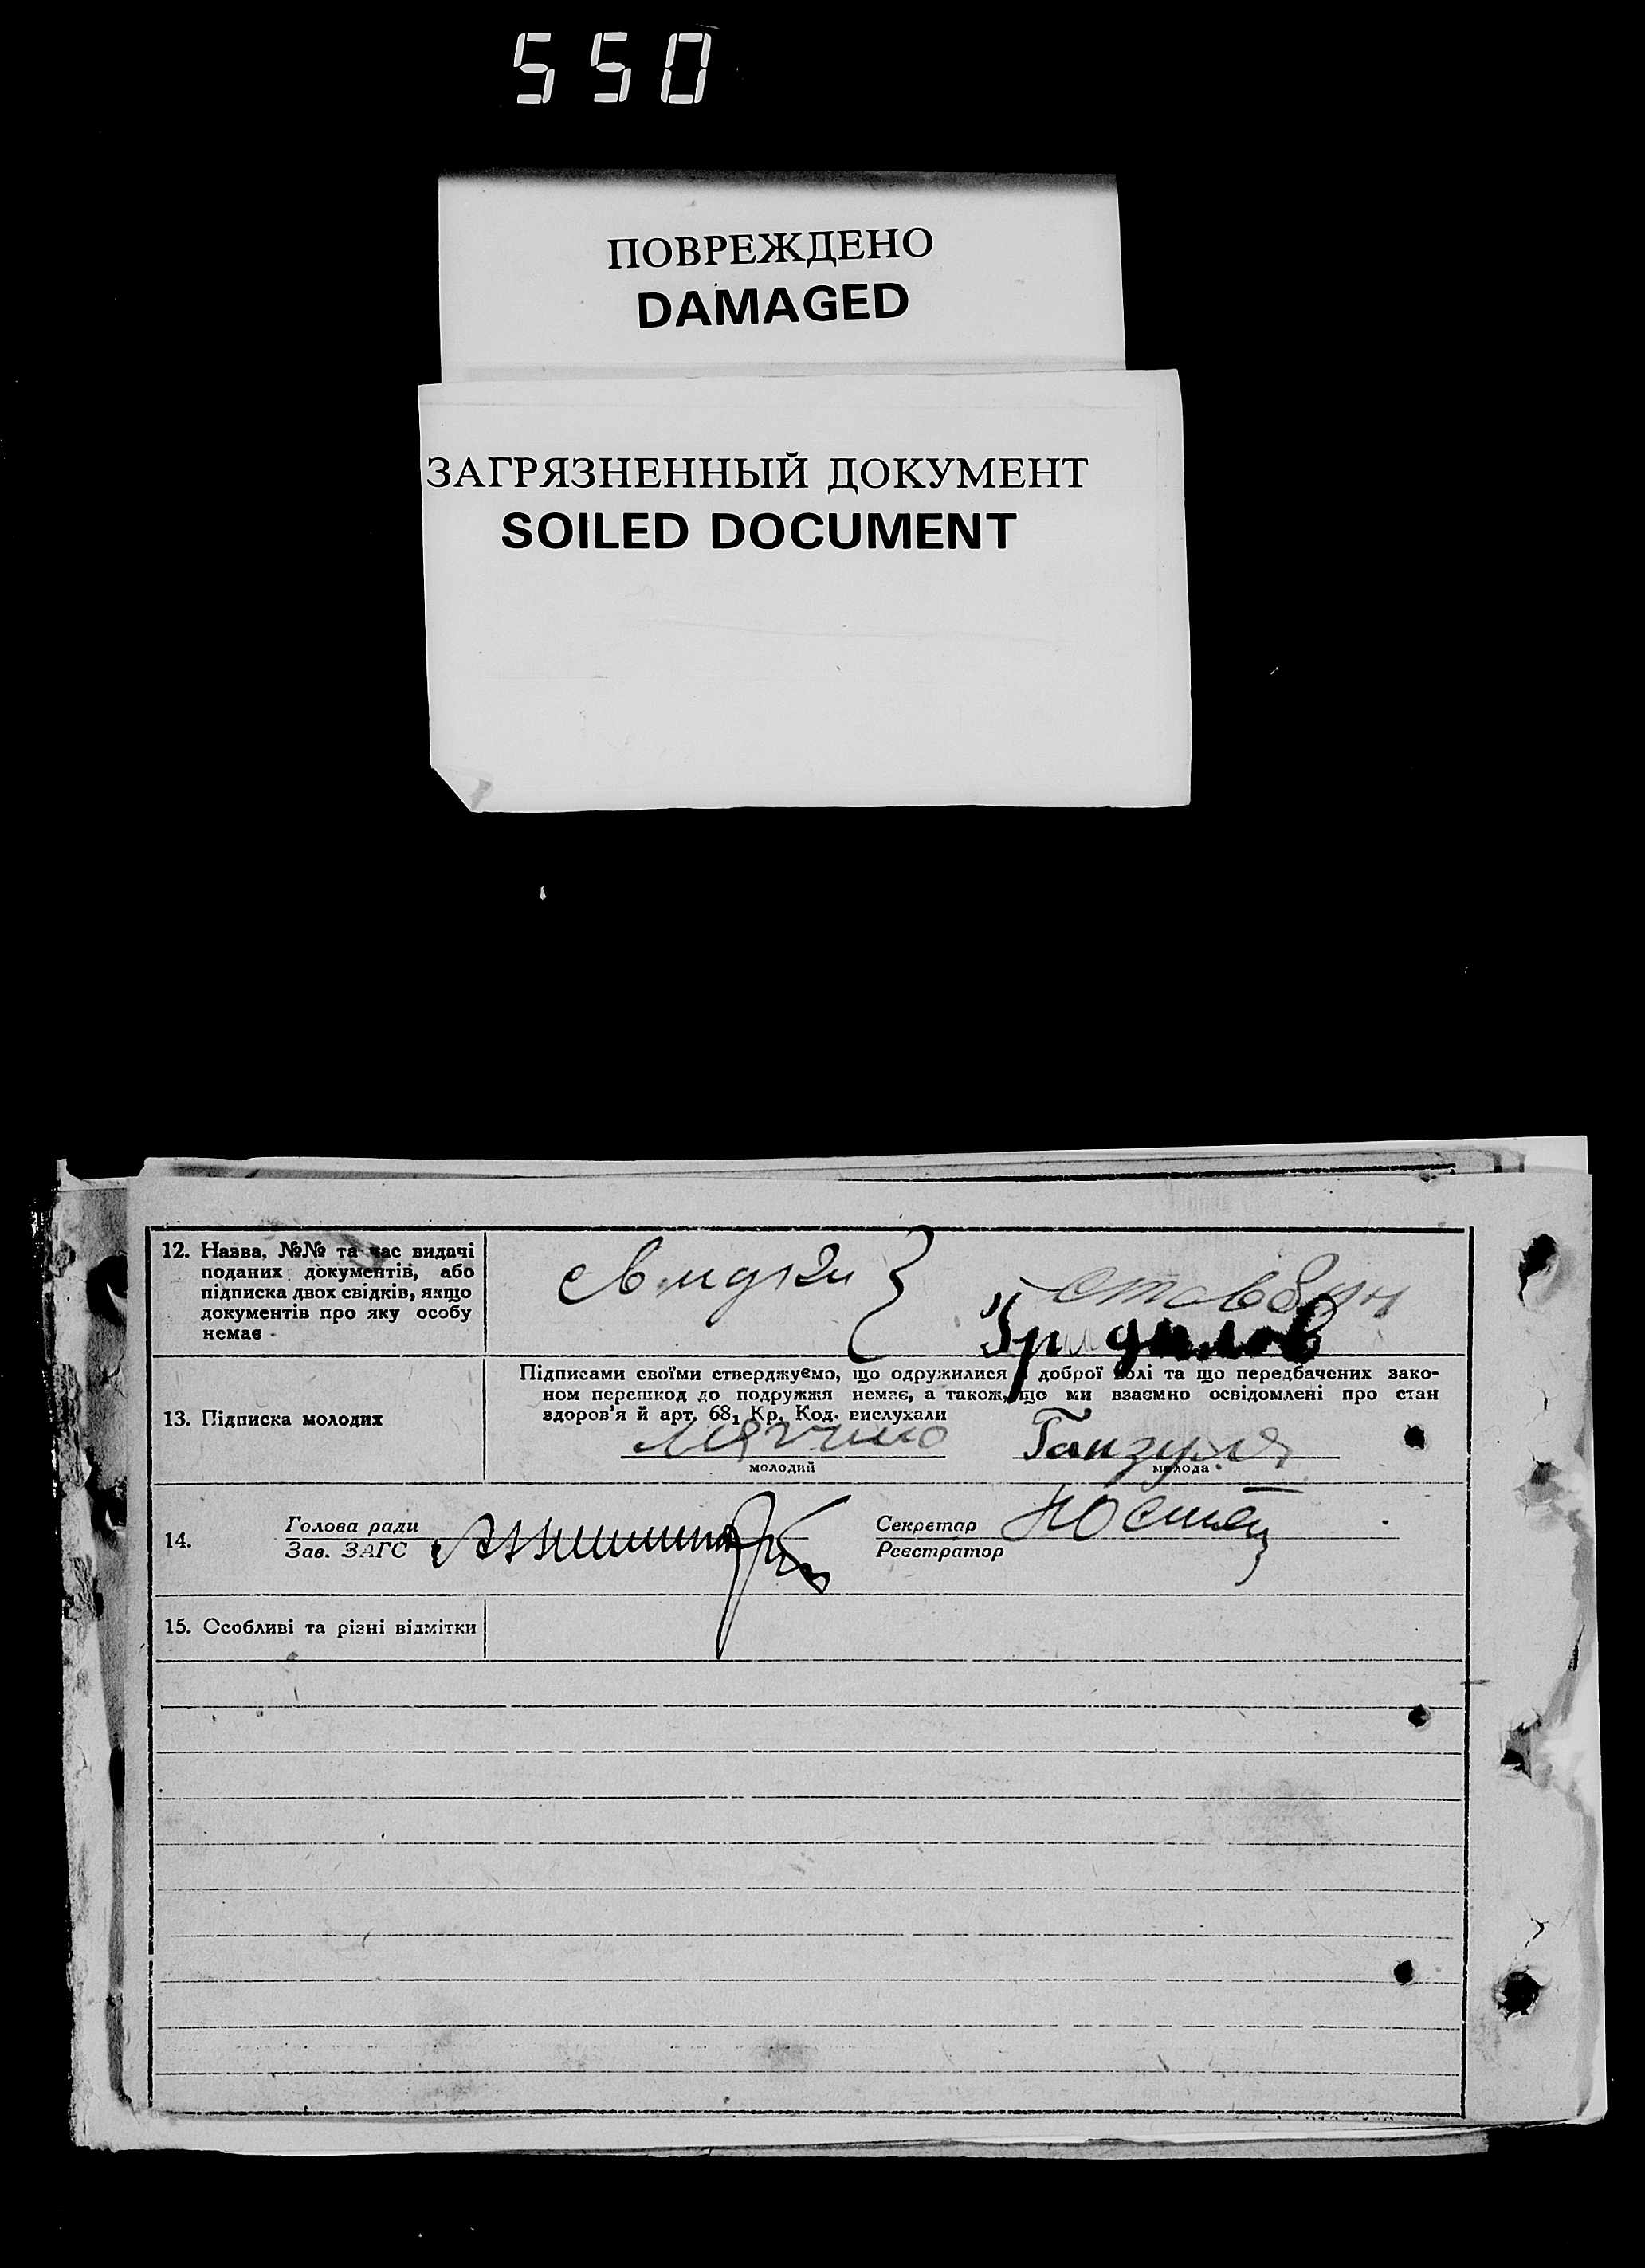 550
ПОВРЕЖДЕНО
DAMAGED
ЗАГРЯЗНЕННЫЙ ДОКУМЕНТ
SOILED DOCUMENT
12. Назва, №№ та час видачі
поданих документів, або
підписка двох свідків, якщо
документів про яку особу
немає
13. Підписка молодих
Підписами своїми стверджуємо, що одружилися доброї волі та що передбачених зако-
ном перешкод до подружжя немає, а також, що ми взаємно освідомлені про стан
здоров'я й арт. 68₁ Кр. Код. вислухали
Ганзуля
молодий молода
14.
Голова ради
Зав. ЗАГС
Секретар
Реєстратор
15. Особливі та різні відмітки